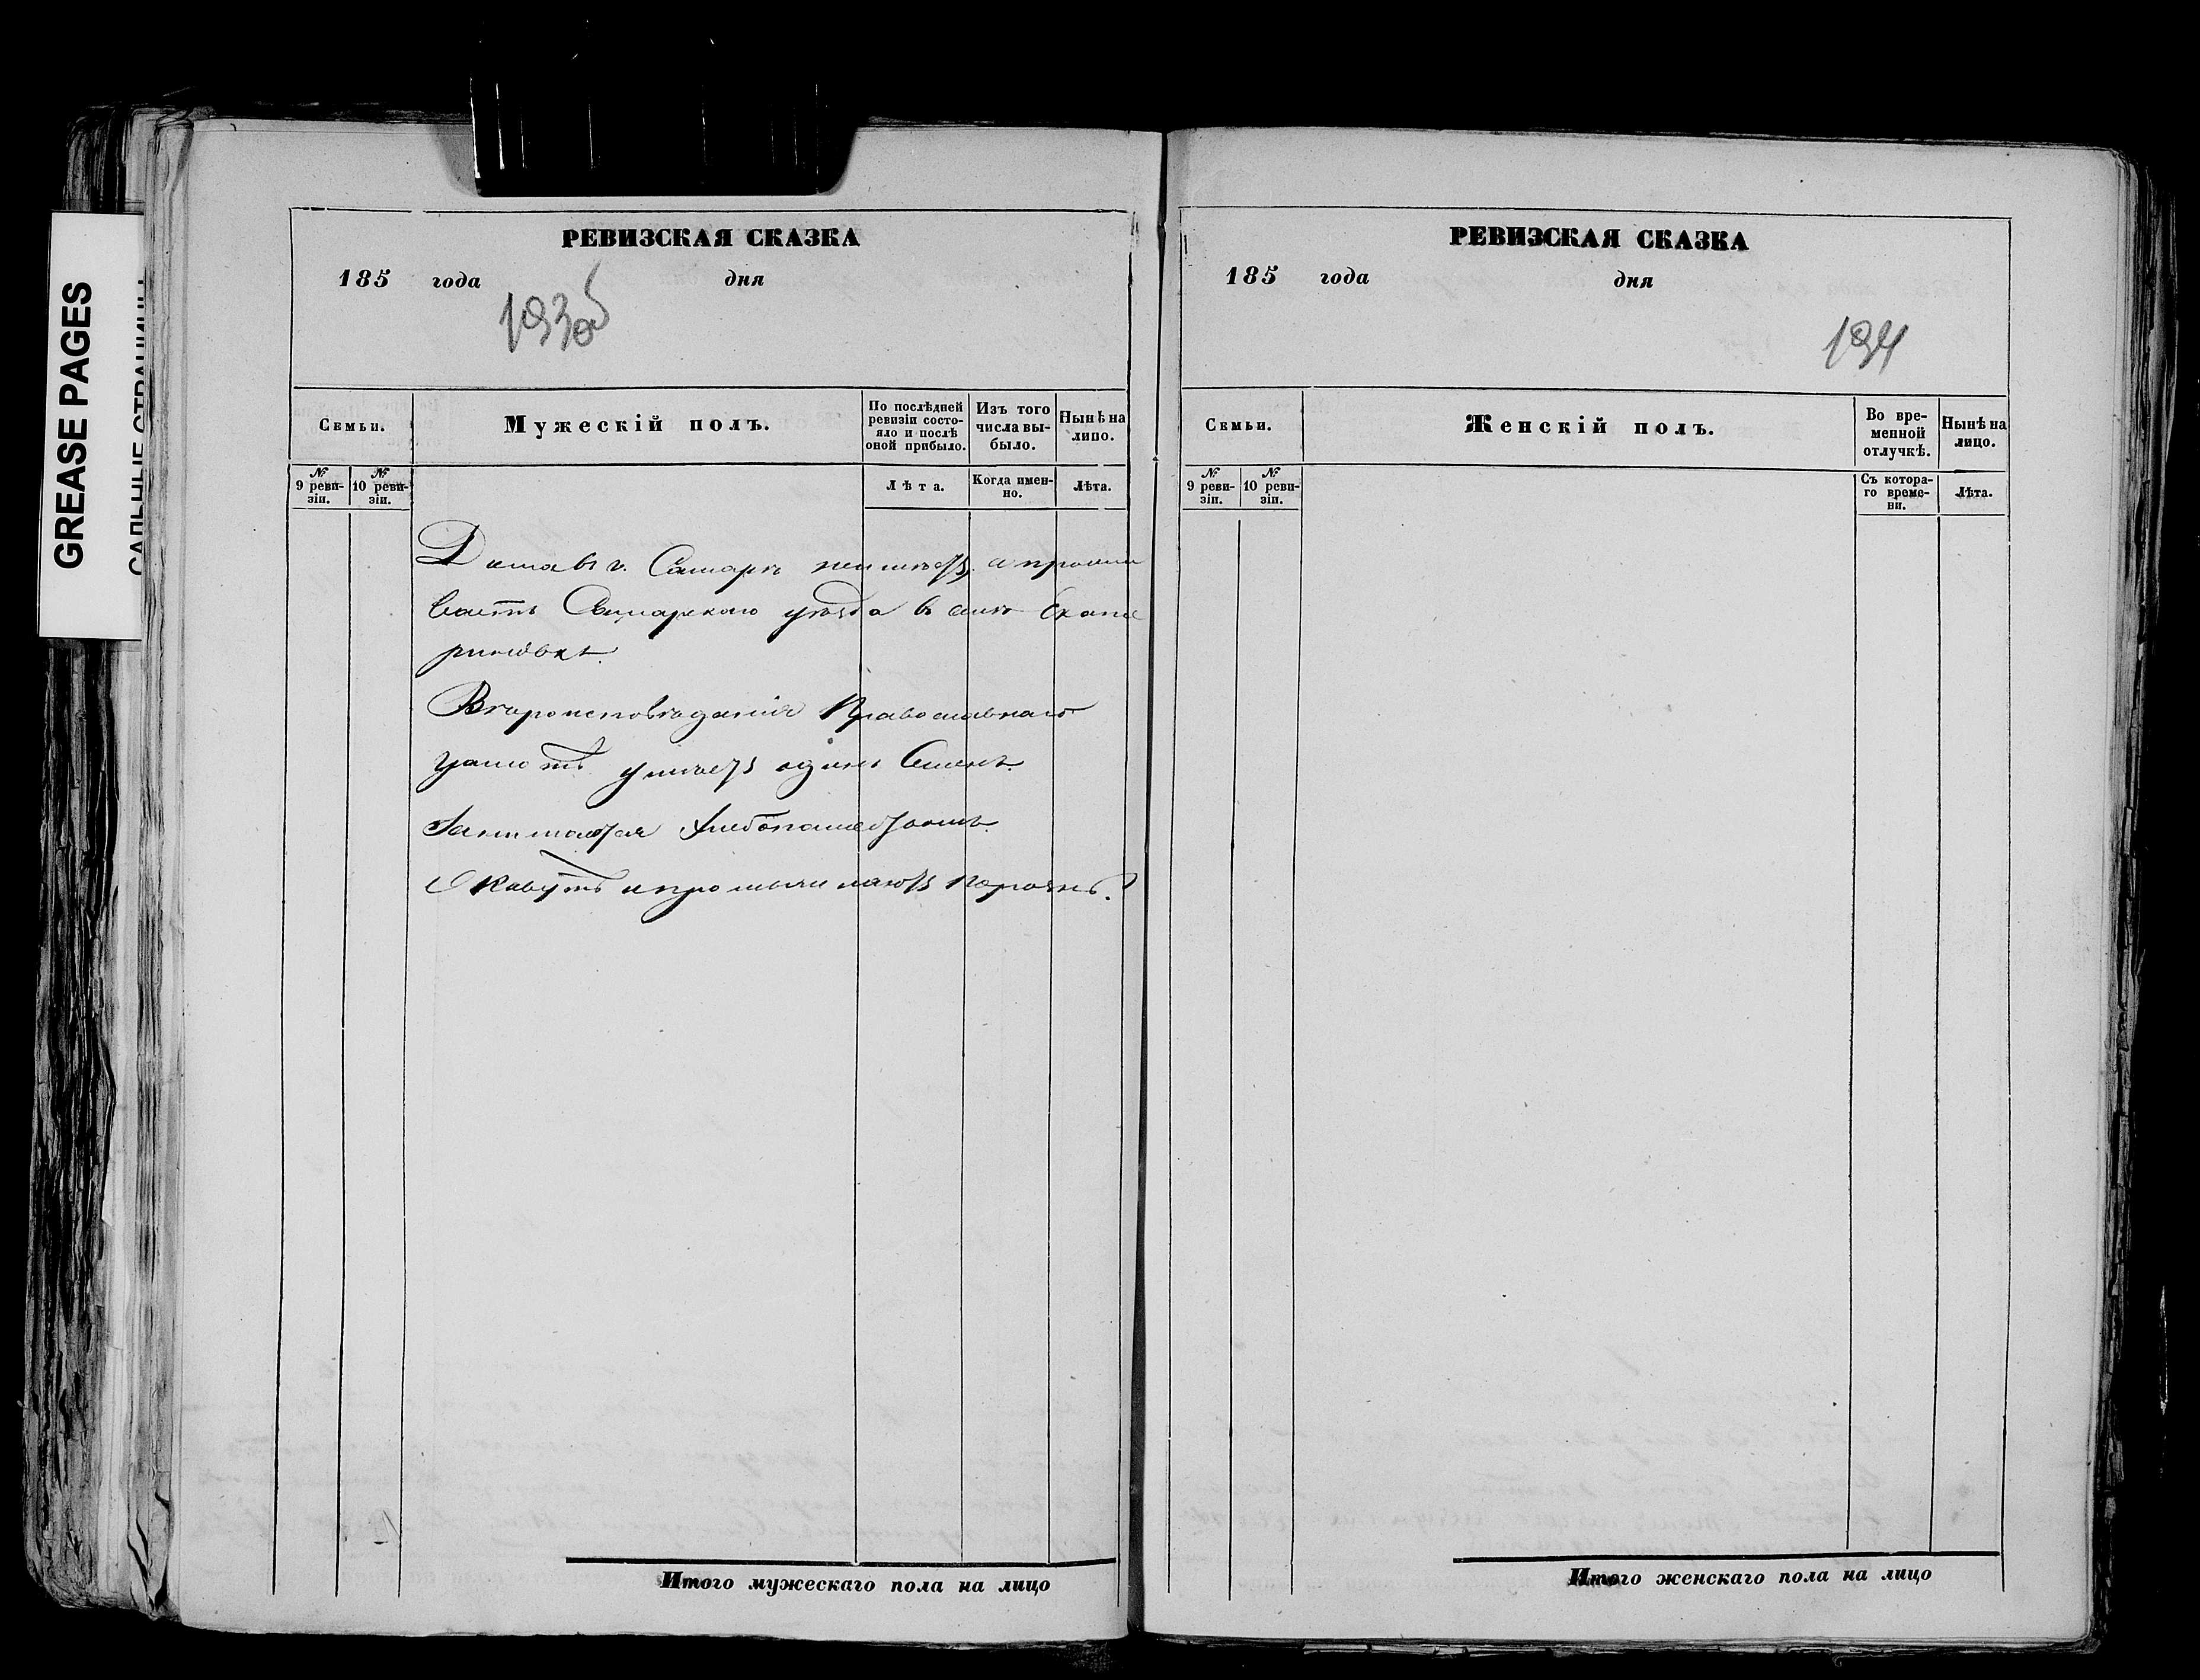 GREASE PAGES
РЕВИЗСКАЯ СКАЗКА
185 года дня
193об
Семьи.
Мужескій полъ.
По послѣдней ревизіи состояло и послѣ оной прибыло.
Изъ того числа выбыло.
Нынѣ на лицо.
№ 9 ревизіи.
№ 10 ревизіи.
Лѣта.
Когда именно.
Лѣта.
Дома въ г. Самарѣ неимѣетъ, а прожи
ваетъ Самарского уѣзда в селѣ Екате
риновкѣ.
Вѣроисповѣданія Православнаго
грамотѣ умѣетъ одинъ Семенъ.
Занимаются хлебопашествомъ.
Живутъ и промышляютъ порознь.
Итого мужескаго пола на лицо
РЕВИЗСКАЯ СКАЗКА
185 года дня
194
Семьи.
Женскій полъ.
Во временной отлучкѣ.
Нынѣ на лицо.
№ 9 ревизіи.
№ 10 ревизіи.
Съ котораго времени.
Лѣта.
Итого женскаго пола на лицо